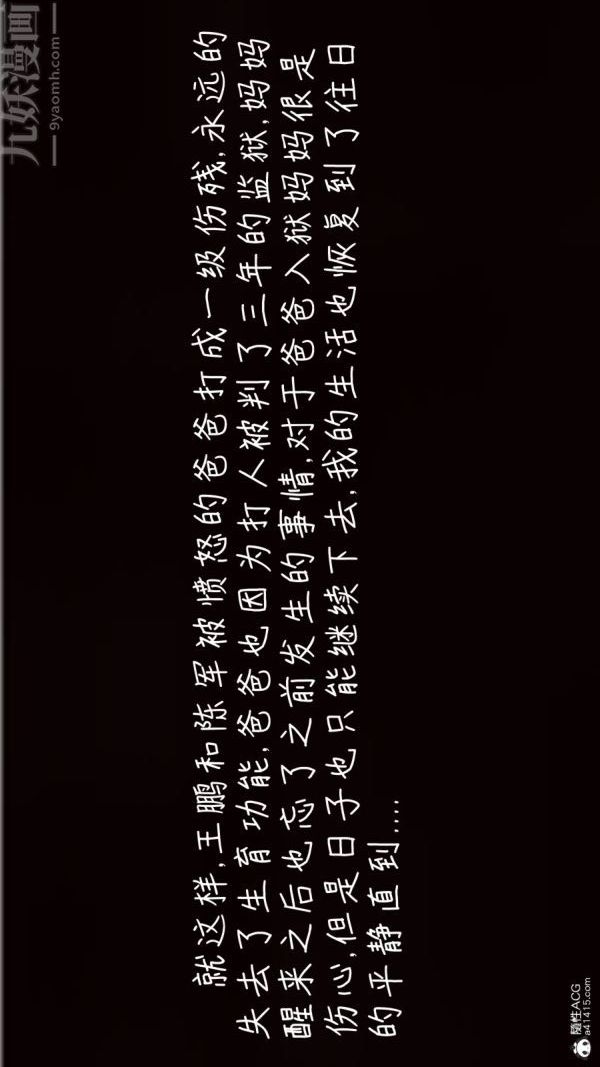 九妖漫画
9yaomh.com
就这样,王鹏和陈军被愤怒的爸爸打成一级伤残,永远的
失去了生育功能,爸爸也因为打人被判了三年的监狱,妈妈
醒来之后也忘了之前发生的事情,对于爸爸入狱妈妈很是
伤心,但是日子也只能继续下去,我的生活也恢复到了往日
的平静直到....
隨性ACG
a41415.com